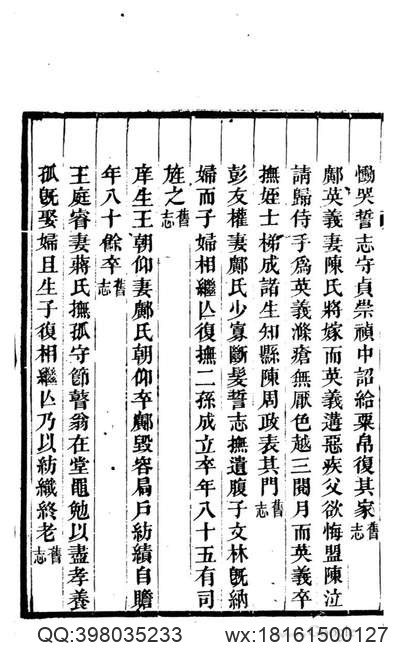 慟哭誓志守貞崇禎中詔給粟帛復其家舊志
鄺英義妻陳氏將嫁而英義遘惡疾父欲悔盟陳泣
請歸侍手爲英義滌瘡無厭色越三閱月而英義卒
撫姪士梯成諸生知縣陳周政表其門舊志
彭友權妻鄺氏少寡斷髮誓志撫遺腹子文林旣納
婦而子婦相繼亾復撫二孫成立卒年八十五有司
旌之舊志
庠生王朝仰妻鄺氏朝仰卒鄺毀容扃戶紡績自贍
年八十餘卒舊志
王庭睿妻蔣氏撫孤守節瞽翁在堂黽勉以盡孝養
孤旣娶婦且生子復相繼亾乃以紡織終老舊志
QQ:398035233 wx:18161500127